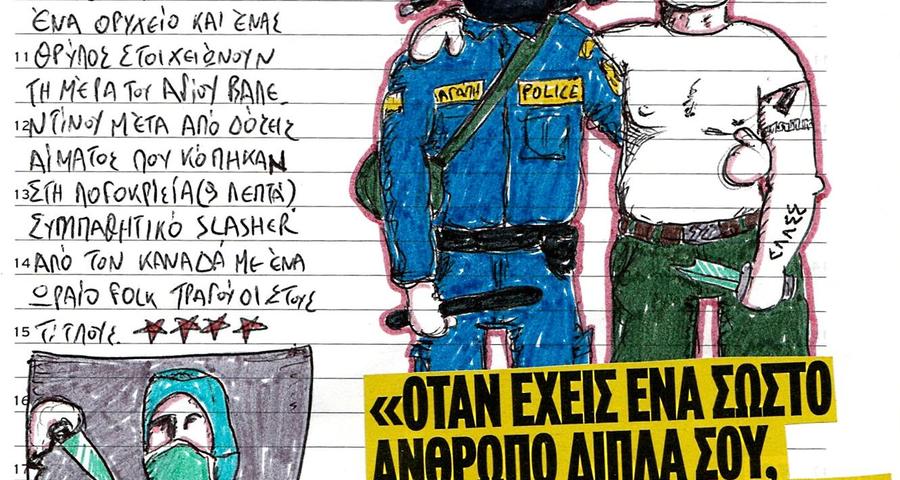 ΈΝΑ ΟΡΥΧΕΊΟ ΚΑΙ ΈΝΑΣ
11 ΘΡΎΛΟΣ ΣΤΟΙΧΕΙΏΝΟΥΝ
ΤΗ ΜΈΡΑ ΤΟΥ ΑΓΊΟΥ ΒΑΛΕ
12 ΝΤΊΝΟΥ ΜΕΤΆ ΑΠΌ ΔΌΣΕΙΣ
ΑΊΜΑΤΟΣ ΠΟΥ ΚΌΠΗΚΑΝ
13 ΣΤΗ ΛΟΓΟΚΡΙΣΊΑ (9 ΛΕΠΤΆ)
ΣΥΜΠΑΘΗΤΙΚΌ SLASHER
14 ΑΠΌ ΤΟΝ ΚΑΝΑΔΆ ΜΕ ΈΝΑ
ΩΡΑΊΟ FOLK ΤΡΑΓΟΎΔΙ ΣΤΟΥΣ
15 ΤΊΤΛΟΥΣ. ★★★★
16
17
ΑΓΆΠΗ POLICE
ΕΛΛΑΣ
«ΟΤΑΝ ΕΧΕΙΣ ΕΝΑ ΣΩΣΤΟ
ΑΝΘΡΩΠΟ ΔΙΠΛΑ ΣΟΥ,